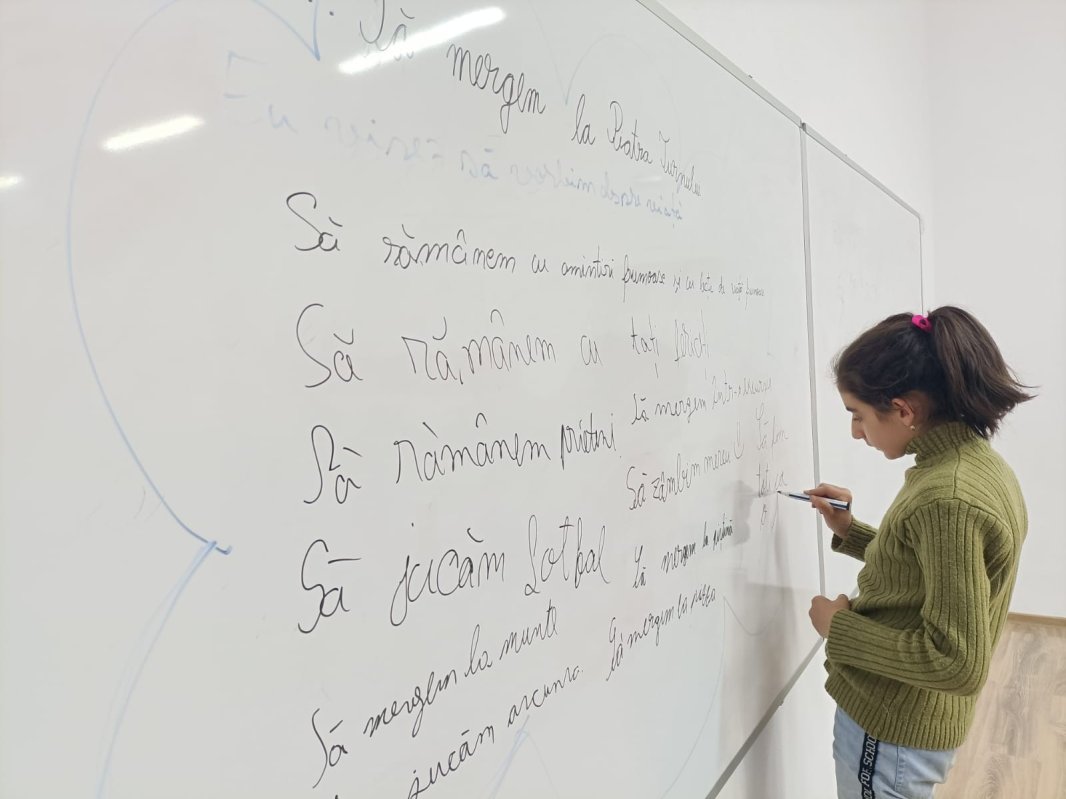 Să mergem la Piatra Turnului
Eu visez să vorbim despre viață
Să rămânem cu amintiri frumoase și cu lecții de viață frumoase
Să rămânem cu toți fericiți
Să rămânem prieteni
Să mergem într-o excursie
Să zâmbim mereu
Să fim
toți
Să jucăm fotbal
Să mergem la piscină
Să mergem la munte
Să mergem la pizza
jucăm ascunsa